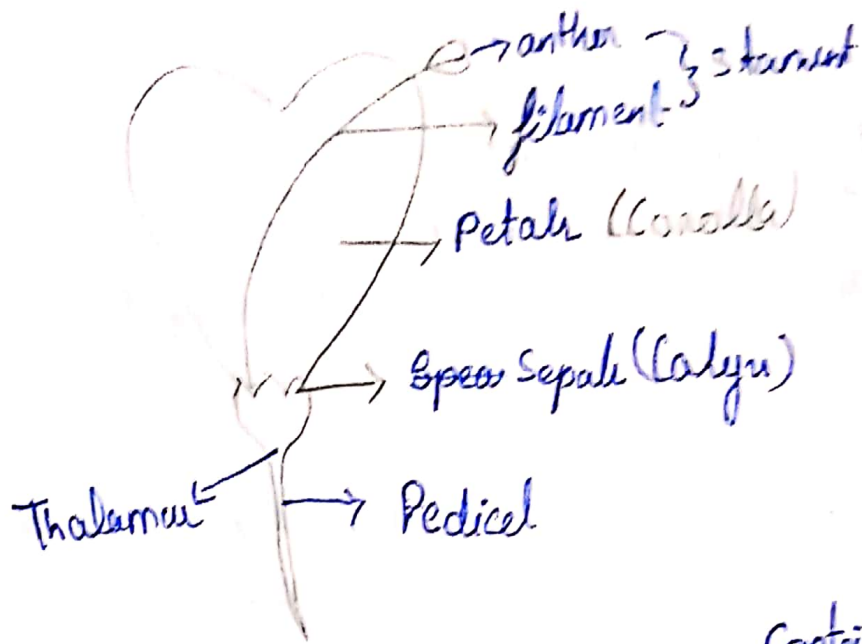 anther
filament } Stament
Petals (Corolla)
Sepals (Calyx)
Thalamus
Pedicel